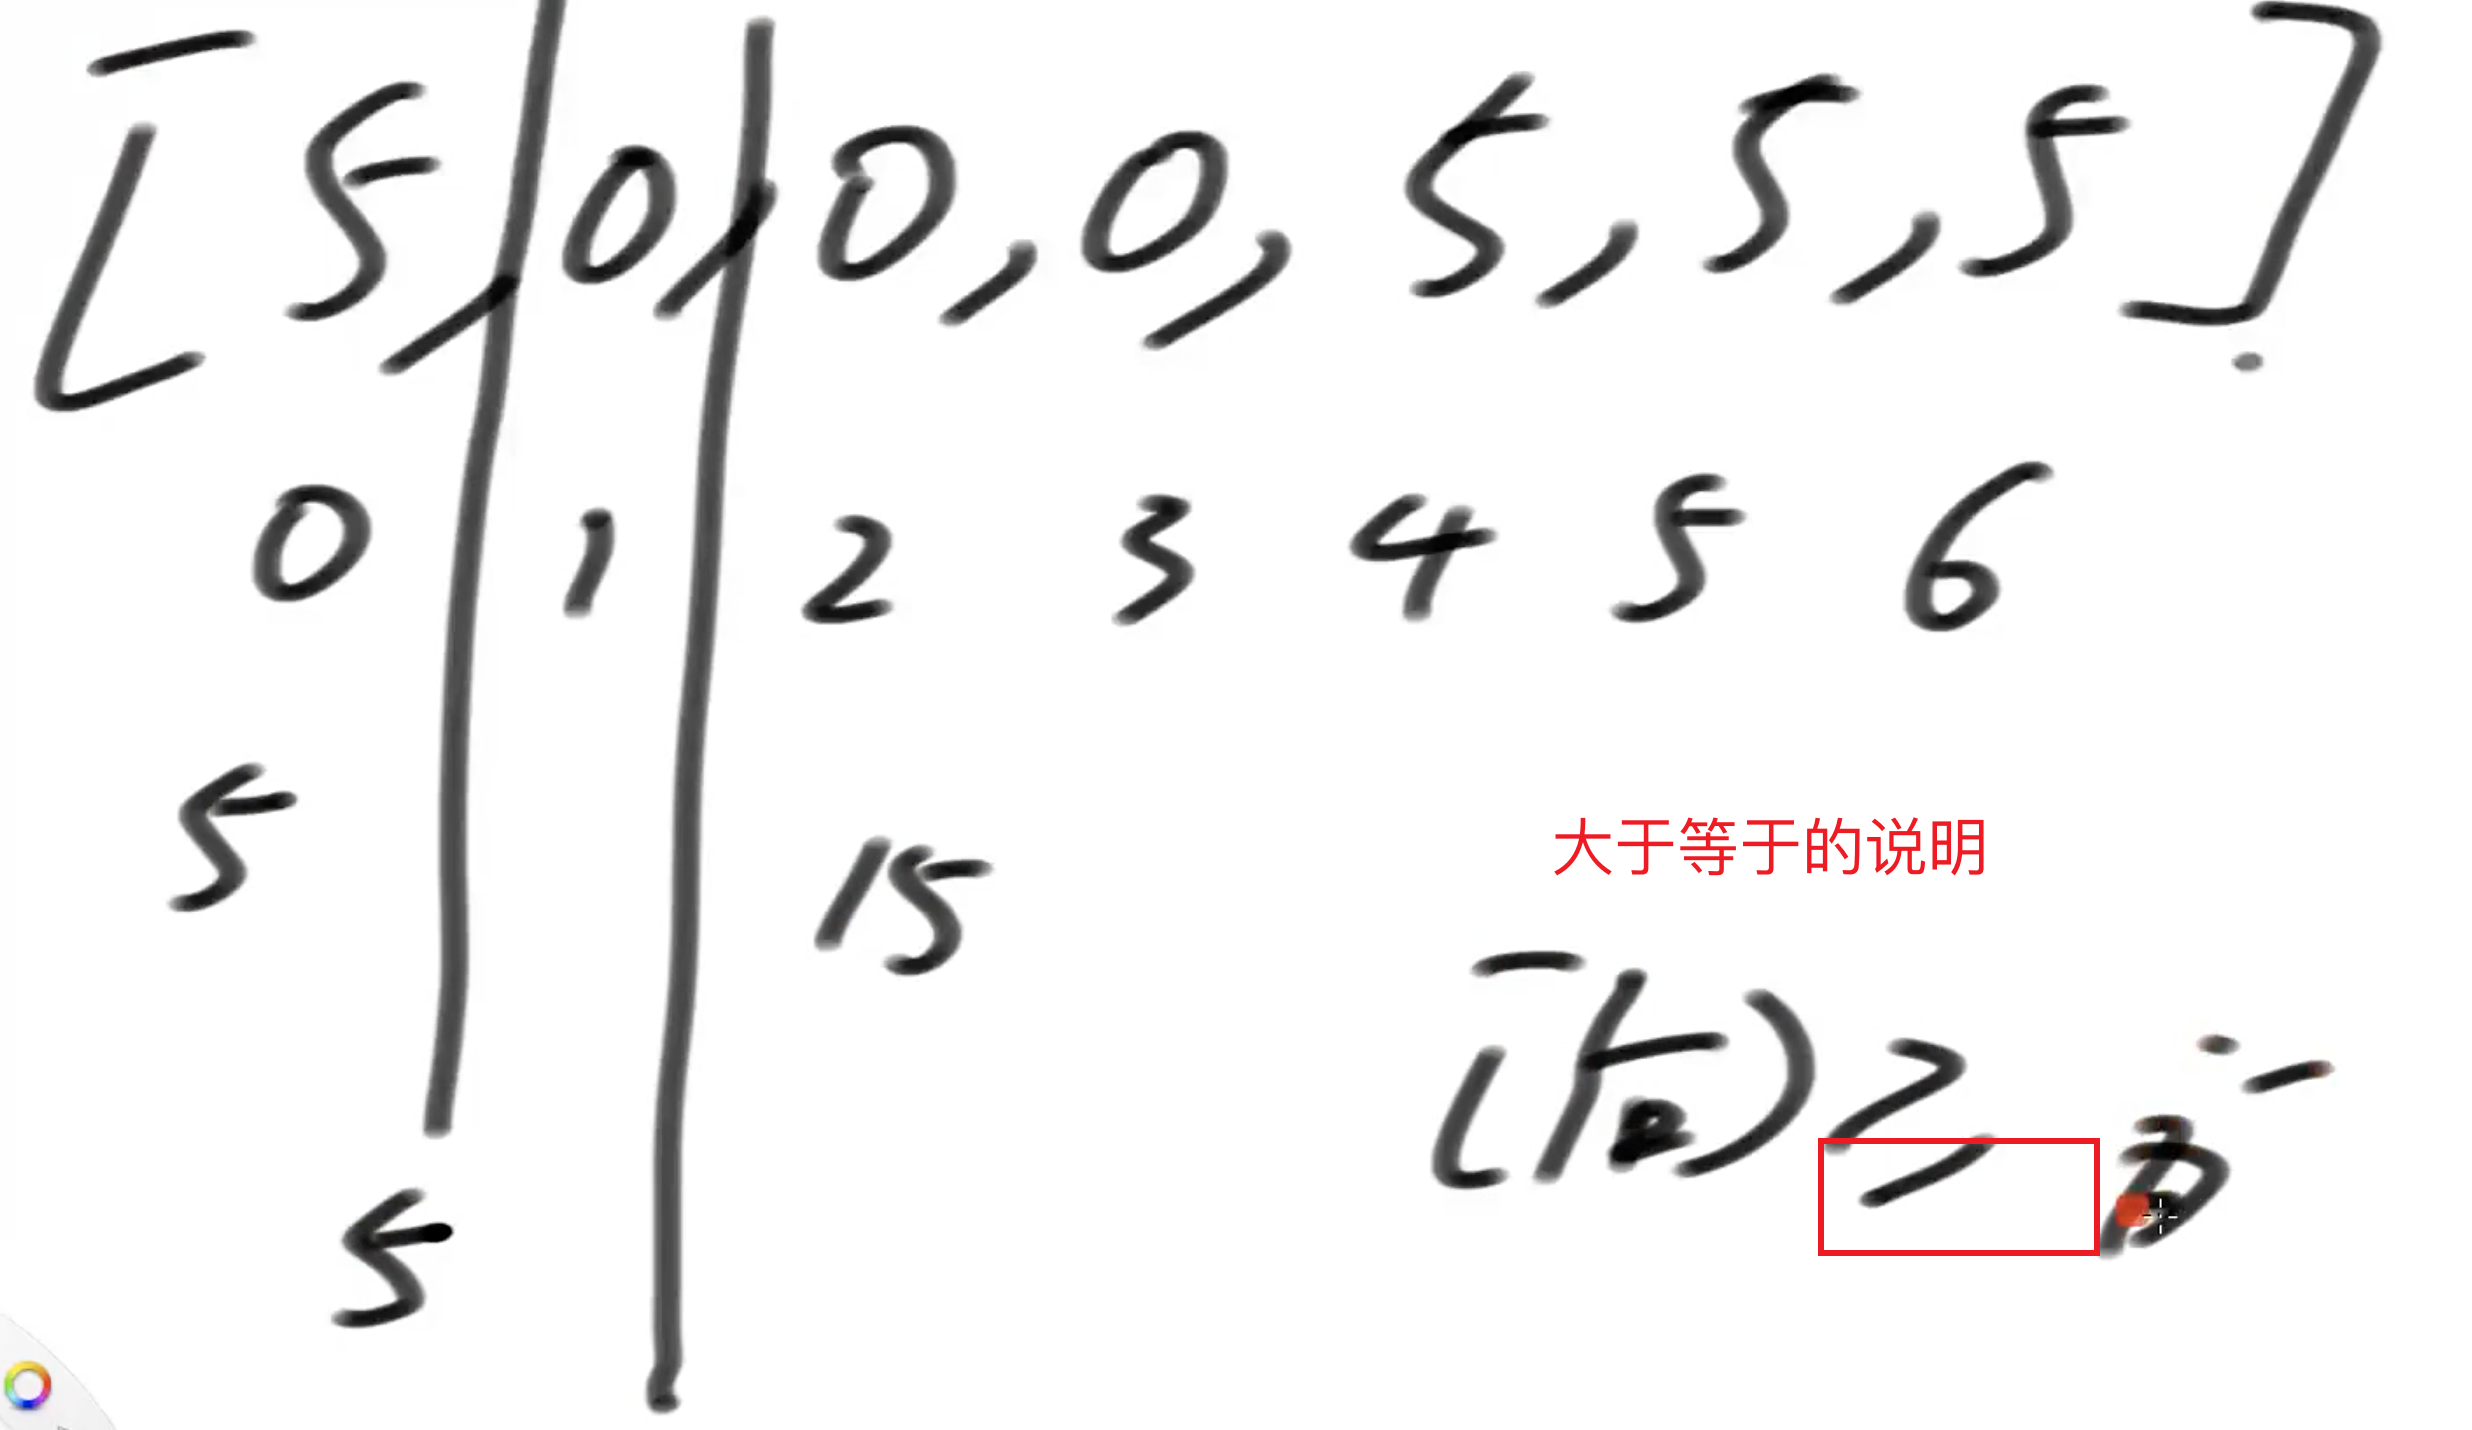 [5,0,0,0,5,5,5]
0 1 2 3 4 5 6
5
15
大于等于的说明
≥
5